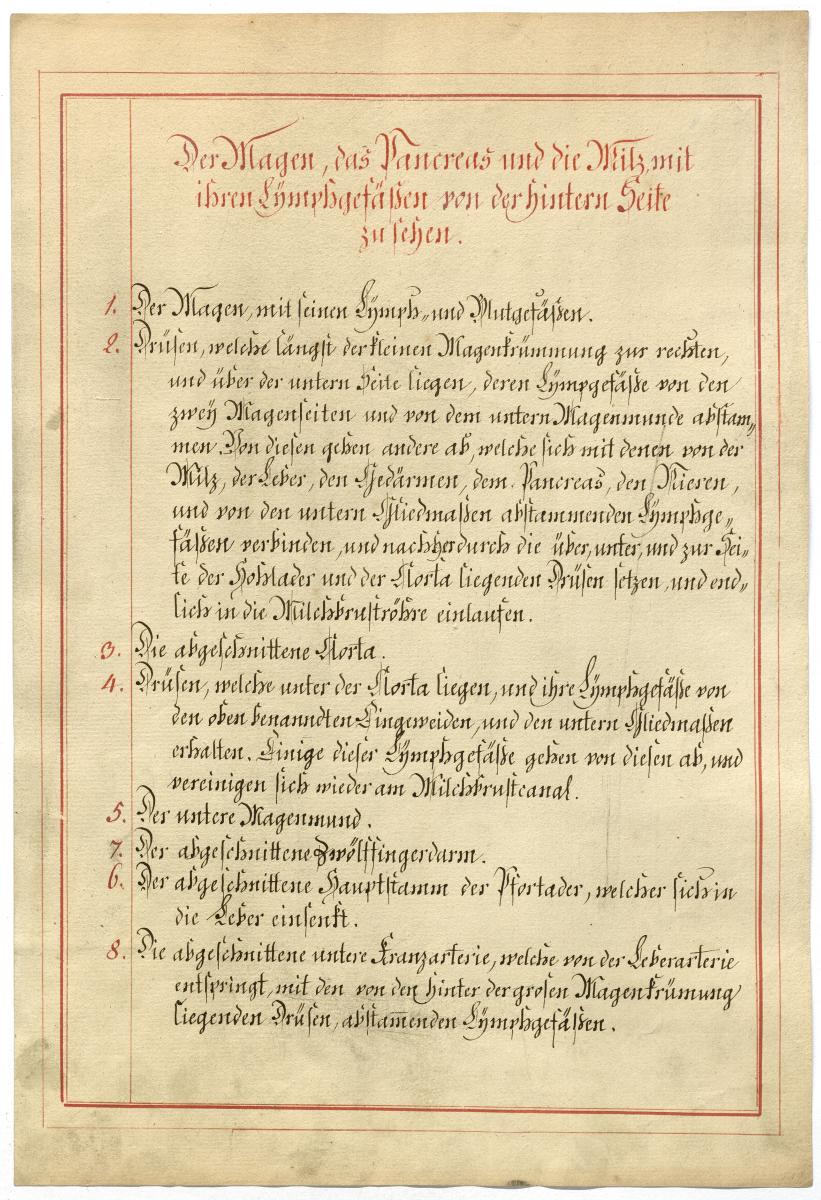 Der Magen, das Pancreas und die Milz, mit
ihren Lÿmphgefäßen von der hintern Seite
zu sehen.
1. Der Magen, mit seinen Lÿmph- und Blutgefäßen.
2. Drüsen, welche längst der kleinen Magenkrümmung zur rechten,
und über der untern Seite liegen, deren Lÿmpgefäße von den
zweÿ Magenseiten und von dem untern Magenmunde abstam-
men. Von diesen gehen andere ab, welche sich mit denen von der
Milz, der Leber, den Gedärmen, dem Pancreas, den Nieren,
und von den untern Gliedmaßen abstammenden Lÿmphge-
fäßen verbinden, und nachher durch die über, unter, und zur Sei-
te der Hohlader und der Aorta liegenden Drüsen setzen, und end-
lich in die Milchbruströhre einlaufen.
3. Die abgeschnittene Aorta.
4. Drüsen, welche unter der Aorta liegen, und ihre Lÿmphgefäße von
den oben benanndten Eingeweiden, und den untern Gliedmaßen
erhalten. Einige dieser Lÿmphgefäße gehen von diesen ab, und
vereinigen sich wieder am Milchbrustcanal.
5. Der untere Magenmund.
7. Der abgeschnittene Zwölffingerdarm.
6. Der abgeschnittene Hauptstamm der Pfortader, welcher sich in
die Leber einsenkt.
8. Die abgeschnittene untere Kranzarterie, welche von der Leberarterie
entspringt, mit den von den hinter der grosen Magenkrümung
liegenden Drüsen, abstam̅enden Lÿmphgefäßen.